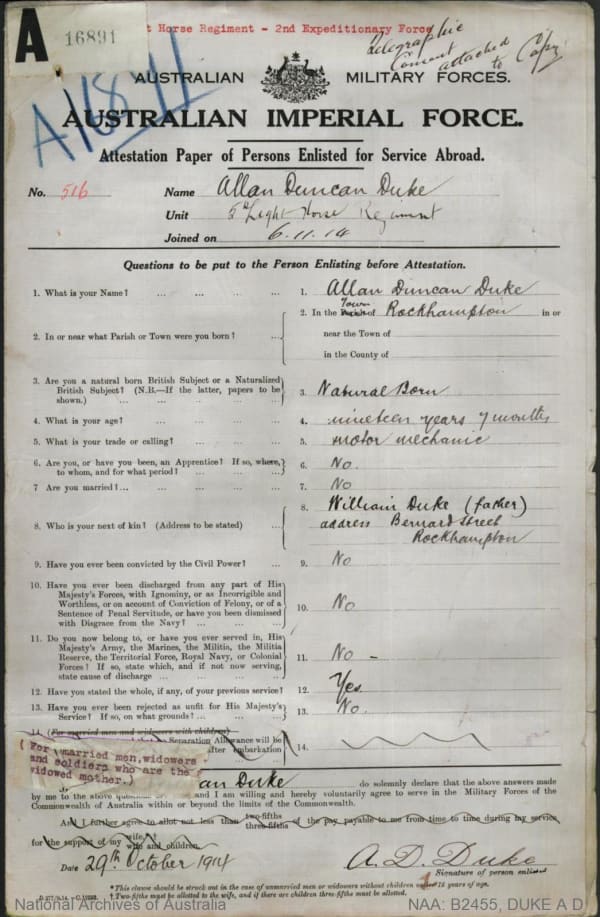 A
16891
t Horse Regiment - 2nd Expeditionary Force
telegraphic
Consent attached
to Copy
AUSTRALIAN MILITARY FORCES.
AUSTRALIAN IMPERIAL FORCE.
Attestation Paper of Persons Enlisted for Service Abroad.
No. 516 Name Allan Duncan Duke
Unit 5th Light Horse Regiment
Joined on 6.11.14
Questions to be put to the Person Enlisting before Attestation.
1. What is your Name? ... ... ... ... 1. Allan Duncan Duke
2. In or near what Parish or Town were you born? ... 2. In the Town of Rockhampton in or
near the Town of
in the County of
3. Are you a natural born British Subject or a Naturalized
British Subject? (N.B.—If the latter, papers to be
shown.) ... ... ... ... ... 3. Natural Born
4. What is your age? ... ... ... ... 4. nineteen years 7 months
5. What is your trade or calling? ... ... ... 5. motor mechanic
6. Are you, or have you been, an Apprentice? If so, where,
to whom, and for what period? ... ... ... 6. No.
7 Are you married? ... ... ... ... ... 7. No
8. Who is your next of kin? (Address to be stated) ... 8. William Duke (father)
address Bernard Street
Rockhampton
9. Have you ever been convicted by the Civil Power? ... 9. No
10. Have you ever been discharged from any part of His
Majesty's Forces, with Ignominy, or as Incorrigible and
Worthless, or on account of Conviction of Felony, or of a
Sentence of Penal Servitude, or have you been dismissed
with Disgrace from the Navy? ... ... ... 10. No
11. Do you now belong to, or have you ever served in, His
Majesty's Army, the Marines, the Militia, the Militia
Reserve, the Territorial Force, Royal Navy, or Colonial
Forces? If so, state which, and if not now serving,
state cause of discharge ... ... ... ... 11. No -
12. Have you stated the whole, if any, of your previous service? 12. Yes.
13. Have you ever been rejected as unfit for His Majesty's
Service? If so, on what grounds? ... ... ... 13. No.
14 (For married men and widowers with children)
Separation Allowance will be
after embarkation 14.
(For married men, widowers
and soldiers who are the
widowed mother.)
an Duke do solemnly declare that the above answers made
by me to the above and I am willing and hereby voluntarily agree to serve in the Military Forces of the
Commonwealth of Australia within or beyond the limits of the Commonwealth.
And I further agree to allot not less than two-fifths
three-fifths of the pay payable to me from time to time during my service,
for the support of my wife.
wife and children.
Date 29th October 1914 A. D. Duke
Signature of person enlisted
*This clause should be struck out in the case of unmarried men or widowers without children under 18 years of age.
†Two-fifths must be allotted to the wife, and if there are children three-fifths must be allotted.
National Archives of Australia NAA: B2455, DUKE A D